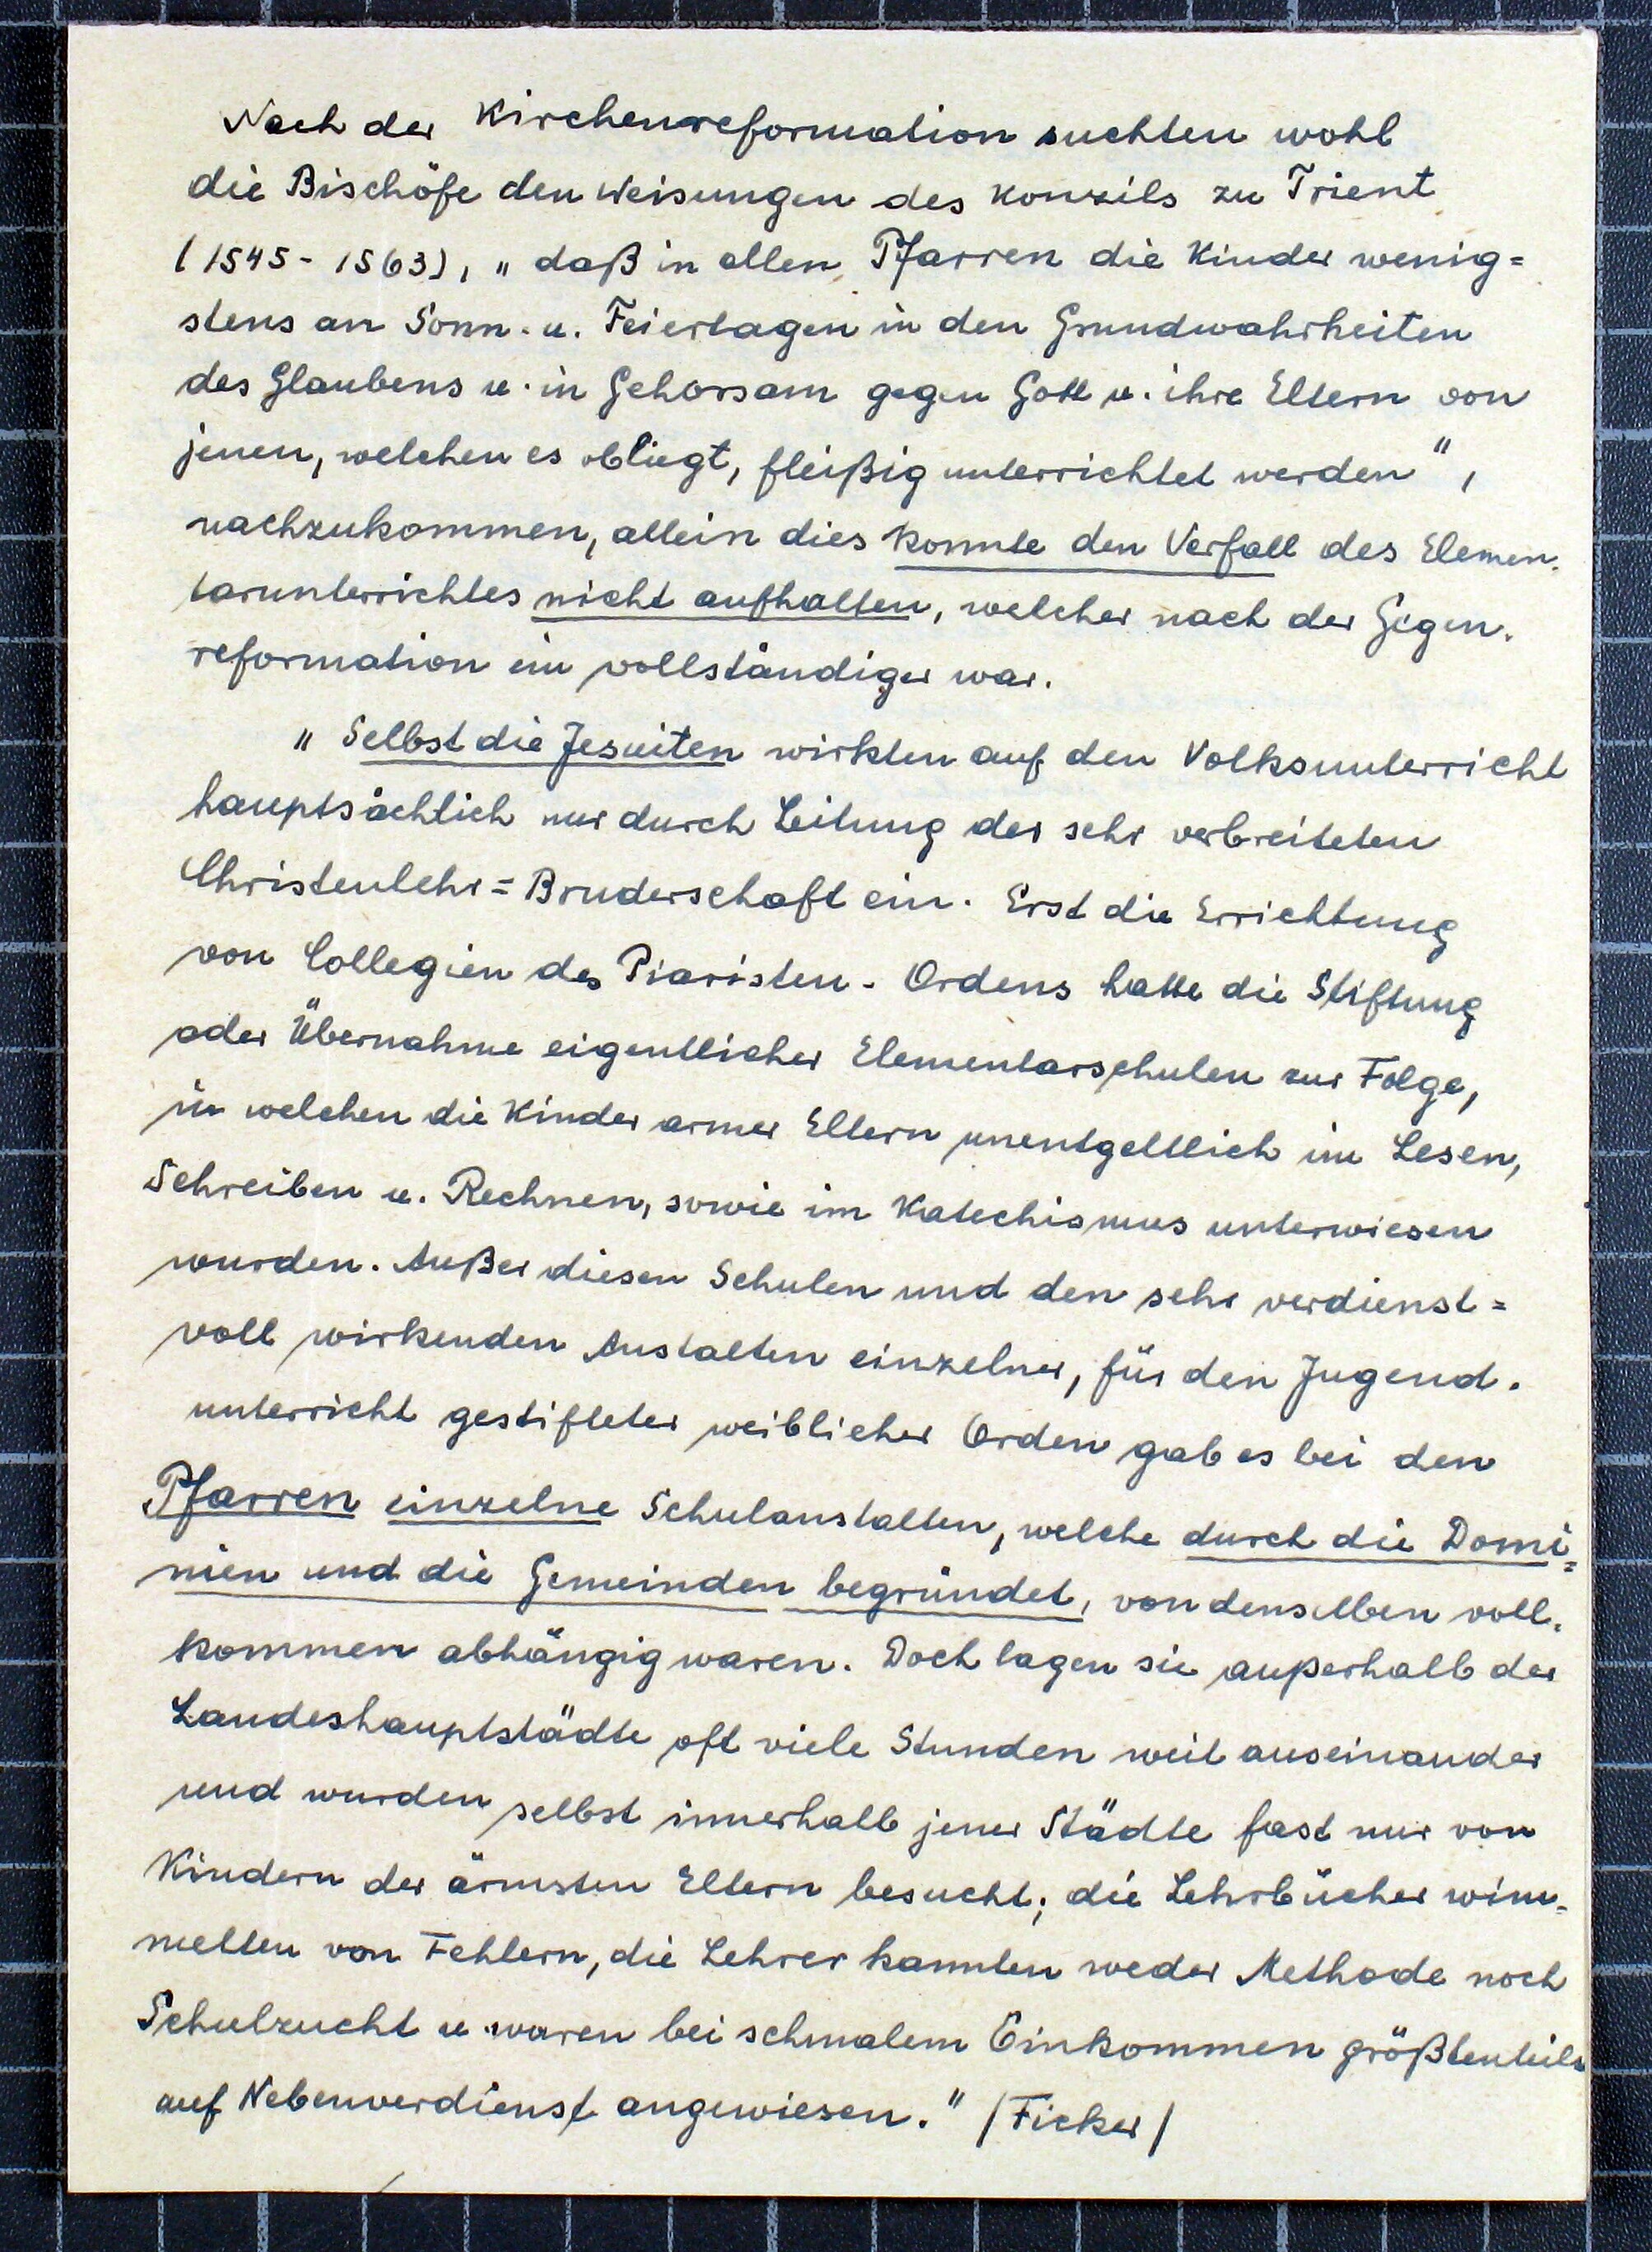 Nach der Kirchenreformation suchten wohl
die Bischöfe den Weisungen des Konzils zu Trient
(1545 - 1563), „ daß in allen Pfarren die Kinder wenig=
stens an Sonn- u. Feiertagen in den Grundwahrheiten
des Glaubens u. in Gehorsam gegen Gott u. ihre Eltern von
jenen, welchen es obliegt, fleißig unterrichtet werden",
nachzukommen, allein dies konnte den Verfall des Elemen-
tarunterrichtes nicht aufhalten, welcher nach der Gegen-
reformation ein vollständiger war.
„ Selbst die Jesuiten wirkten auf den Volksunterricht
hauptsächlich nur durch Leitung der sehr verbreiteten
Christenlehr=Bruderschaft ein. Erst die Errichtung
von Collegien des Piaristen-Ordens hatte die Stiftung
oder Übernahme eigentlicher Elementarschulen zur Folge,
in welchen die Kinder armer Eltern unentgeltlich im Lesen,
Schreiben u. Rechnen, sowie im Katechismus unterwiesen
wurden. Außer diesen Schulen und den sehr verdienst=
voll wirkenden Anstalten einzelner, für den Jugend-
unterricht gestifteter weiblicher Orden gab es bei den
Pfarren einzelne Schulanstalten, welche durch die Domi=
nien und die Gemeinden begründet, von denselben voll-
kommen abhängig waren. Doch lagen sie außerhalb der
Landeshauptstädte oft viele Stunden weit auseinander
und wurden selbst innerhalb jener Städte fast nur von
Kindern der ärmsten Eltern besucht; die Lehrbücher wim-
melten von Fehlern, die Lehrer kannten weder Methode noch
Schulzucht u. waren bei schmalem Einkommen größtenteils
auf Nebenverdienst angewiesen." /Ficker/